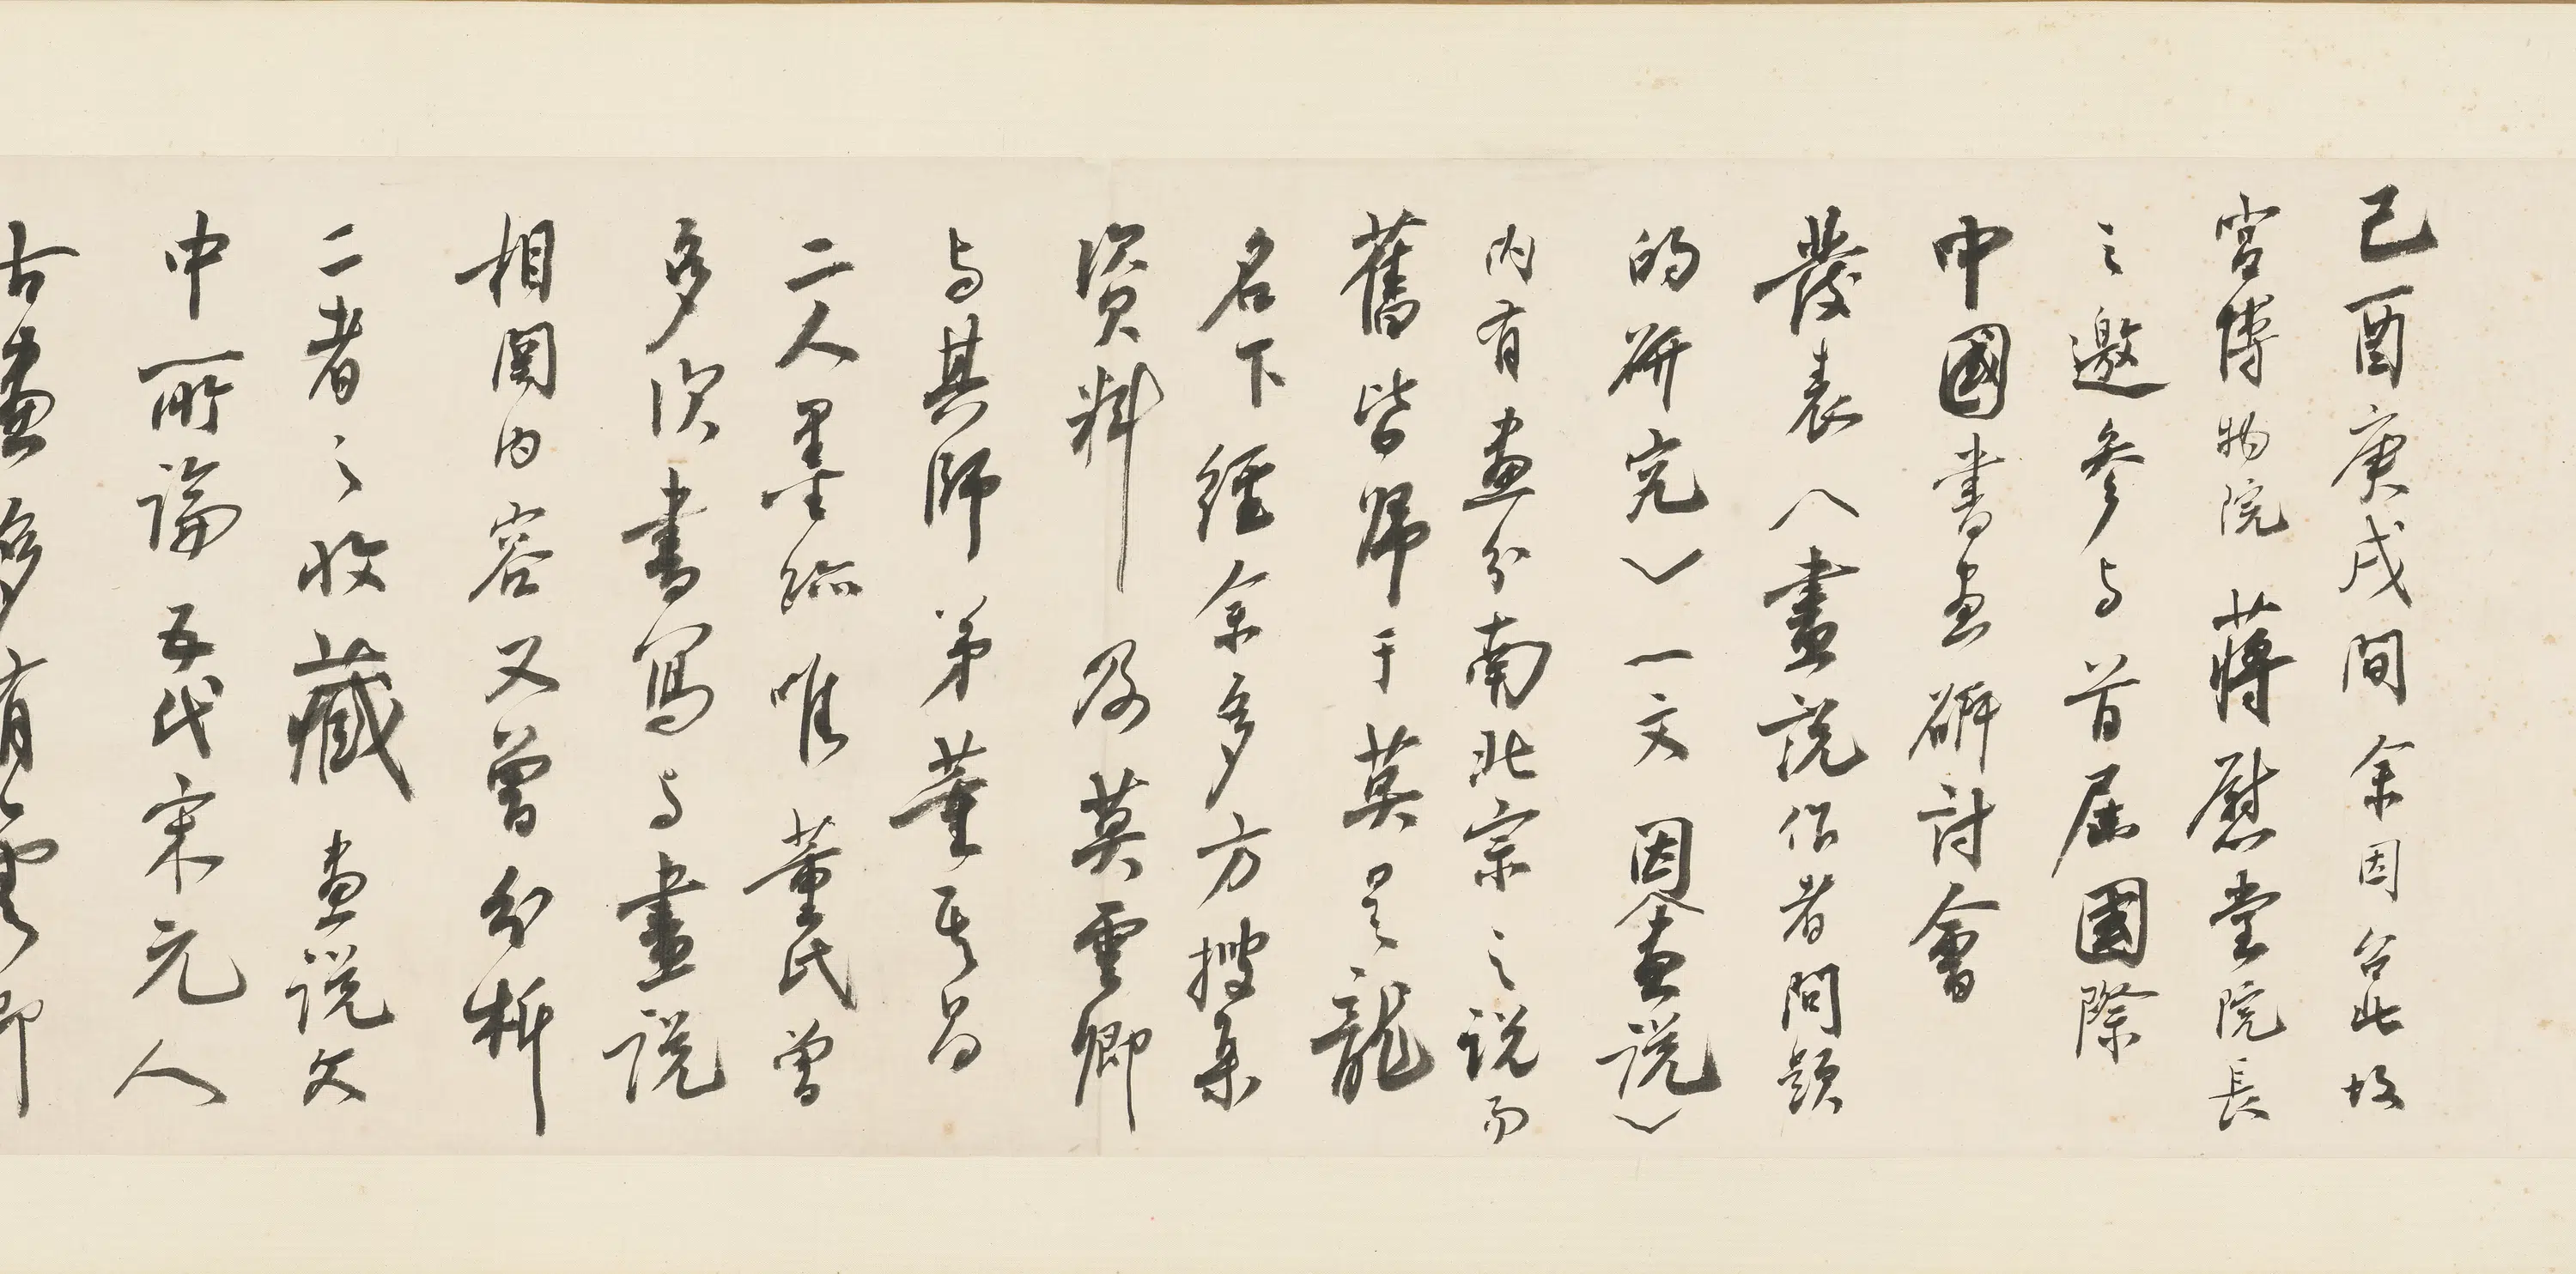 己酉庚戌間余因台北故
宮博物院蔣慰堂院長
之邀参与首屆國際
中國書画研討會
發表〈畫説作者問題
的研究〉一文因〈畫説〉
内有畫分南北宗之説而
舊皆歸于莫是龍
名下經余多方搜集
資料及莫雲卿
与其師弟董其昌
二人墨跡唯董氏曾
多次書寫与畫説
相関内容又曾分析
二者之收藏畫説文
中所論五代宋元人
古畫多有雲卿